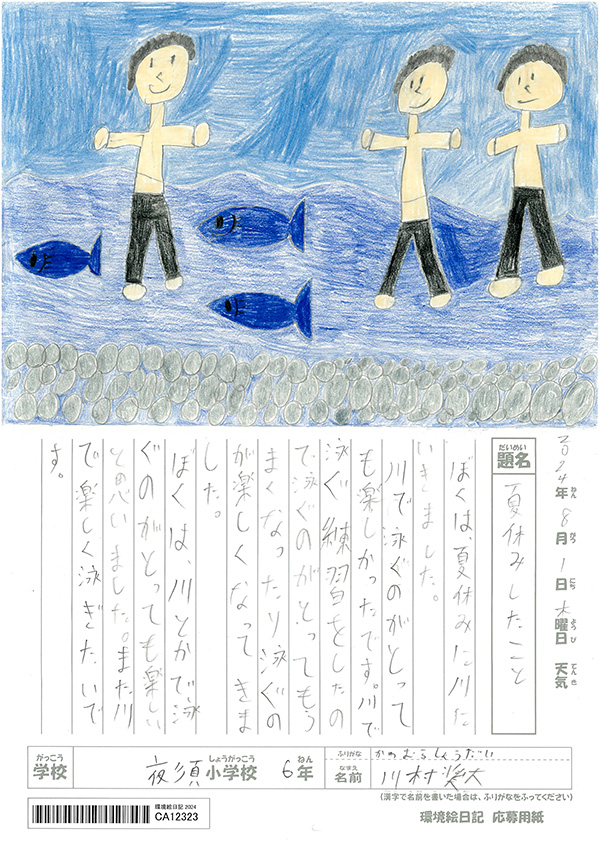 2024年8月1日木曜日 天気
ねん がつ にち ようび てんき
だいめい
題名 夏休みしたこと
ぼくは、夏休みに川に
いきました。
川で泳ぐのがとって
も楽しかったです。川で
泳ぐ練習をしたの
で泳ぐのがとってもう
まくなったり泳ぐの
が楽しくなってきま
した。
ぼくは、川とかで泳
ぐのがとっても楽しい
と思いました。また川
で楽しく泳ぎたいで
す。
がっこう しょうがっこう ねん
学校 夜須小学校 6年
ふりがな かわむらしょうだい
なまえ
名前 川村奨大
(漢字で名前を書いた場合は、ふりがなをふってください)
環境絵日記 2024
CA12323
環境絵日記 応募用紙